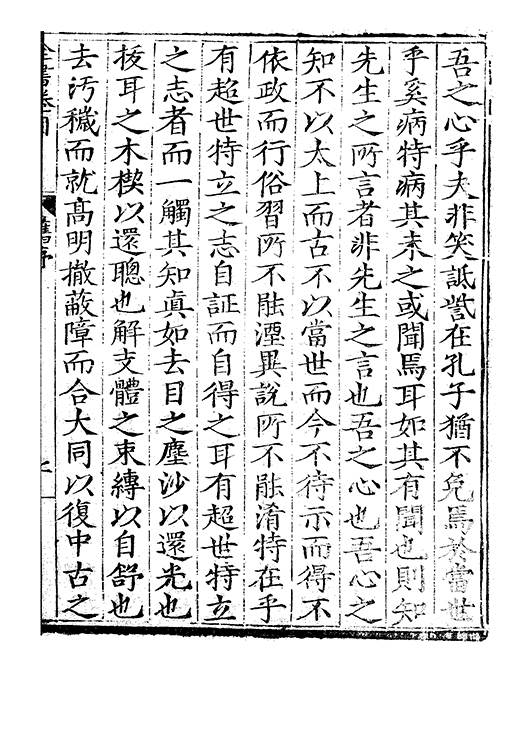 吾之心乎夫非笑詆訾在孔子猶不免焉於當世
乎奚病特病其未之或聞焉耳如其有聞也則知
先生之所言者非先生之言也吾之心也吾心之
知不以太上而古不以當世而今不待示而得不
依政而行俗習所不能湮異說所不能淆特在乎
有超世特立之志自証而自得之耳有超世特立
之志者而一觸其知真如去目之塵沙以還光也
拔耳之木楔以還聰也解支體之束縛以自舒也
去汚穢而就高明撤蔽障而合大同以復中古之
全書卷
舊序